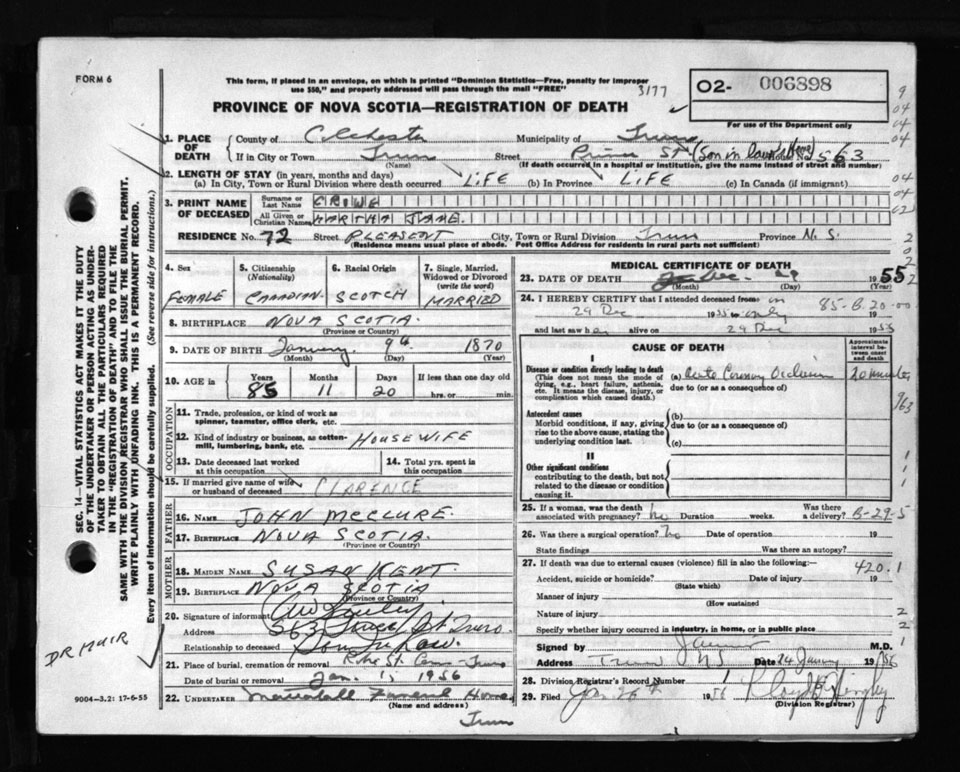 FORM 6
This form, if placed in an envelope, on which is printed "Dominion Statistics—Free, penalty for improper
use $50," and properly addressed will pass through the mail "FREE"
3177
02- 006898
For use of the Department only
PROVINCE OF NOVA SCOTIA—REGISTRATION OF DEATH
1. PLACE OF DEATH
County of Colchester Municipality of Truro
If in City or Town Truro Street Prince St (Son in laws Home) No. 563
(Name) (If death occurred in a hospital or institution, give the name instead of street and number)
2. LENGTH OF STAY (in years, months and days)
(a) In City, Town or Rural Division where death occurred LIFE (b) In Province LIFE (c) In Canada (if immigrant)
3. PRINT NAME OF DECEASED
Surname or Last Name CROWE
All Given or Christian Names MARTHA JANE.
RESIDENCE No. 72 Street PLEASENT City, Town or Rural Division Truro Province N.S.
(Residence means usual place of abode. Post Office Address for residents in rural parts not sufficient)
4. Sex FEMALE
5. Citizenship (Nationality) CANADIAN
6. Racial Origin SCOTCH
7. Single, Married, Widowed or Divorced (write the word) MARRIED
8. BIRTHPLACE NOVA SCOTIA.
(Province or Country)
9. DATE OF BIRTH January 9th 1870
(Month) (Day) (Year)
10. AGE in Years 85 Months 11 Days 20 If less than one day old
hrs. or min.
OCCUPATION
11. Trade, profession, or kind of work as
spinner, teamster, office clerk, etc.
12. Kind of industry or business, as cotten-
mill, lumbering, bank, etc. HOUSEWIFE
13. Date deceased last worked
at this occupation
14. Total yrs. spent in
this occupation
15. If married give name of wife
or husband of deceased CLARENCE
FATHER
16. NAME JOHN McCLURE.
17. BIRTHPLACE NOVA SCOTIA.
(Province or Country)
MOTHER
18. MAIDEN NAME SUSAN KENT.
19. BIRTHPLACE NOVA SCOTIA
(Province or Country)
20. Signature of informant
Address 563 Prince St Truro.
Relationship to deceased Son In Law.
21. Place of burial, cremation or removal St. Cem - Truro
Date of burial or removal Jan. 1, 1956
22. UNDERTAKER Funeral Home
(Name and address)
Truro
MEDICAL CERTIFICATE OF DEATH
23. DATE OF DEATH Dec. 29 1955
(Month) (Day) (Year)
24. I HEREBY CERTIFY that I attended deceased from on 85-B.20-00
29 Dec 1955 only
and last saw her alive on 29 Dec 1955
CAUSE OF DEATH
Approximate interval between onset and death
I
Disease or condition directly leading to death
(This does not mean the mode of
dying, e.g., heart failure, asthenia,
etc. It means the disease, injury, or
complication which caused death.)
(a) Acute Coronary Occlusion 20 minutes
due to (or as a consequence of)
Antecedent causes
Morbid conditions, if any, giving
rise to the above cause, stating the
underlying condition last.
(b)
due to (or as a consequence of)
(c)
II
Other significant conditions
contributing to the death, but not
related to the disease or condition
causing it.
25. If a woman, was the death
associated with pregnancy? no Duration weeks. Was there
a delivery? B-29-5
26. Was there a surgical operation? no Date of operation 19
State findings Was there an autopsy?
27. If death was due to external causes (violence) fill in also the following:— 420.1
Accident, suicide or homicide? Date of injury 19
(State which)
Manner of injury
(How sustained
Nature of injury
Specify whether injury occurred in industry, in home, or in public place
Signed by M.D.
Address Truro NS Date 24 January 1956
28. Division Registrar's Record Number 1
29. Filed Jan 26th 1956
(Division Registrar)
SEC. 14—VITAL STATISTICS ACT MAKES IT THE DUTY
OF THE UNDERTAKER OR PERSON ACTING AS UNDER-
TAKER TO OBTAIN ALL THE PARTICULARS REQUIRED
IN THE "REGISTRATION OF DEATH" AND TO FILE THE
SAME WITH THE DIVISION REGISTRAR WHO SHALL ISSUE THE BURIAL PERMIT.
WRITE PLAINLY WITH UNFADING INK. THIS IS A PERMANENT RECORD.
Every item of information should be carefully supplied. (See reverse side for instructions.)
DR MUIR
9004—3.21 17-6-55